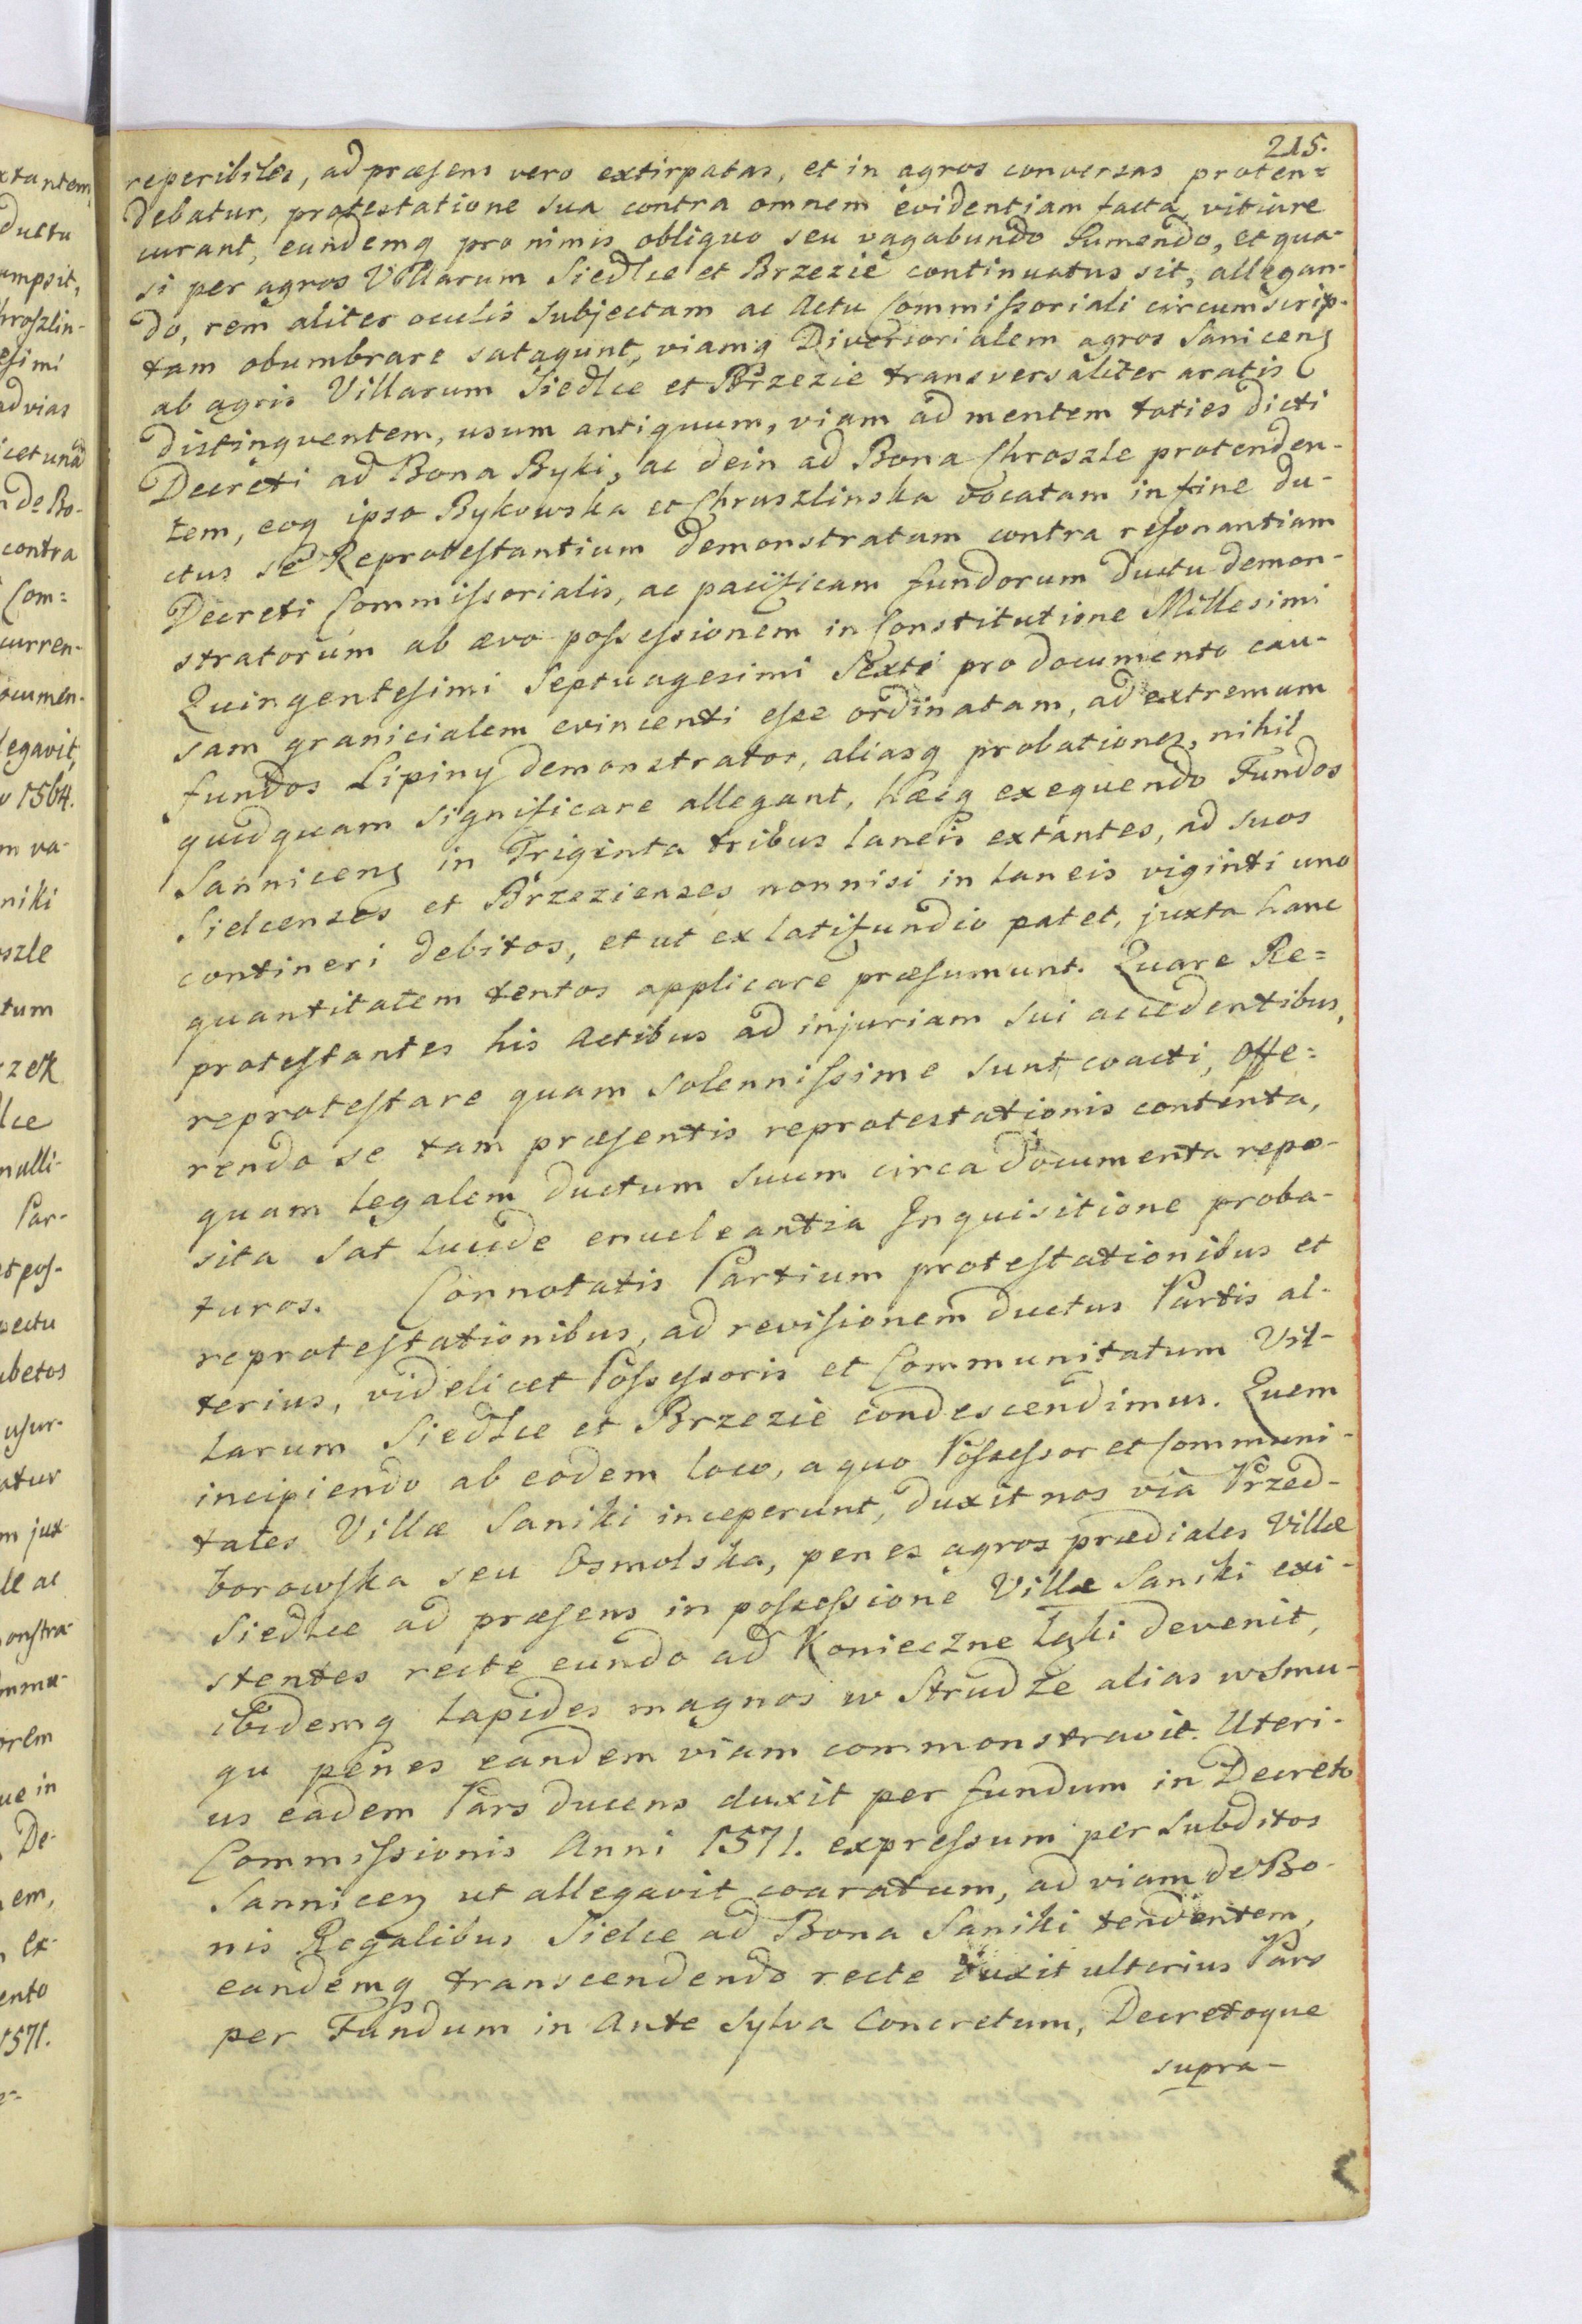 215.
reperibiles, ad præsens vero extirpatas, et in agros conversas proten=
debatur, protestatione sua contra omnem evidentiam facta, vitiare
curant, eundemq pro nimis obliquo seu vagabundo sumendo, et qua-
si per agros Villarum Siedlce et Brzezie continuatus sit, allegan-
do, rem aliter oculis subjectam ac Actu Commissoriali circumscrip-
tam obumbrare satagunt, viamq Diversorialem agros Sanicens
ab agris Villarum Siedlce et Brzezie transversaliter aratis
distinqventem, usum antiquum, viam ad mentem toties dicti
Decreti ad Bona Byki, ac dein ad Bona Chroszle protenden-
tem, eoq ipso Bykowska et Chruszlinska vocatam in fine du-
ctus se Reprotestantium demonstratam contra resonantiam
Decreti Commissorialis, ac pacificam fundorum ductu demon-
stratorum ab ævo possessionem in Constitutione Millesimi
Quingentesimi Septuagesimi Sexti pro documento cau-
sam granicialem evincenti esse ordinatam, ad extremum
fundos Lipiny demonstrator, aliasq probationes, nihil
quidquam significare allegant, hæcq exequendo Fundos
Sannicens in Triginta tribus laneis extantes, ad suos
Sielcenses et Brzezienses nonnisi in laneis viginti uno
contineri debitos, et ut ex latifundio patet, juxta hanc
quantitatem tentos applicare præsumunt. Quare Re=
protestantes his Actibus ad injuriam sui accedentibus,
reprotestare quam solennissime sunt coacti, Offe=
rendo se tam præsentis reprotestationis contenta,
quam legalem ductum suum circa documenta repo-
sita sat lucide enucleantia Inquisitione proba-
turos. Connotatis Partium protestationibus et
reprotestationibus, ad revisionem ductus Partis al-
terius, videlicet Possessoris et Communitatum Vil-
larum Siedlce et Brzezie condescendimus. Quem
incipiendo ab eodem loco, a quo Possessor et Communi-
tates Villæ Saniki inceperunt, duxit nos via Przed-
borowska seu Osmolska, penes agros prædiales Villæ
Siedlce ad præsens in possessione Villæ Saniki exi-
stentes recte eundo ad Konieczne Łąki devenit,
ibidemq lapides magnos w Strudze alias w Smu-
gu penes eandem viam commonstravit. Uteri-
us eadem Pars ducens duxit per fundum in Decreto
Commissionis Anni 1571. expressum per subditos
Sannicen ut allegavit coaratum, ad viam de Bo-
nis Regalibus Sielce ad Bona Saniki tendentem,
eandemq transcendendo recte duxit ulterius Pars
per Fundum in Ante Sylva Concretum, Decretoque
supra-